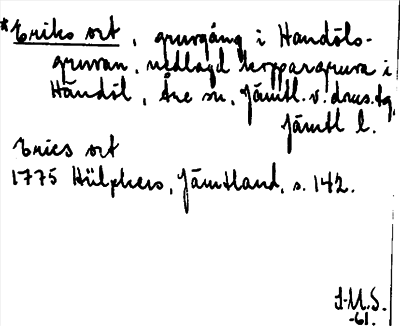 *Eriks ort, gruvgång i Handöls-
gruvan, nedlagd koppargruva i
Handöl, Åre sn, Jämtl. v. doms.tg,
Jämtl l.
Erics ort
1775 Hülphers, Jämtland, s. 142.
J.M.S.
-61.